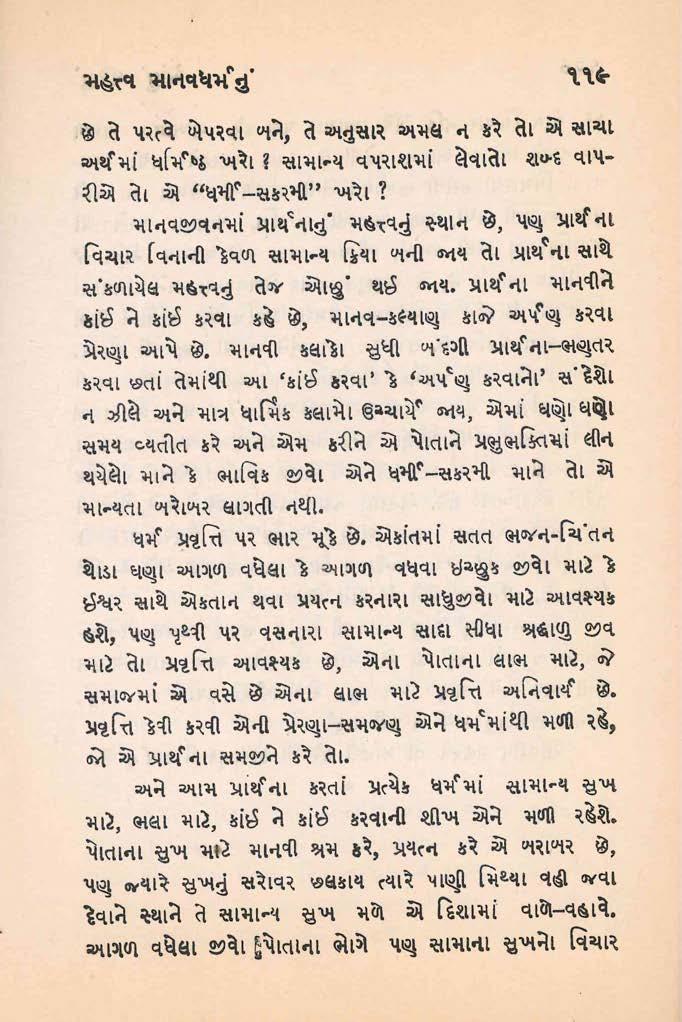 મહત્ત્વ માનવધર્મનું ૧૧૯
છે તે પરત્વે બેપરવા બને, તે અનુસાર અમલ ન કરે તો એ સાચા
અર્થમાં ધર્મિષ્ઠ ખરો ? સામાન્ય વપરાશમાં લેવાતો શબ્દ વાપ-
રીએ તો એ “ધર્મી–સકરમી” ખરો ?
માનવજીવનમાં પ્રાર્થનાનું મહત્ત્વનું સ્થાન છે, પણ પ્રાર્થના
વિચાર વિનાની કેવળ સામાન્ય ક્રિયા બની જાય તો પ્રાર્થના સાથે
સંકળાયેલ મહત્ત્વનું તેજ ઓછું થઈ જાય. પ્રાર્થના માનવીને
કાંઈ ને કાંઈ કરવા કહે છે, માનવ–કલ્યાણ કાજે અર્પણ કરવા
પ્રેરણા આપે છે. માનવી કલાકો સુધી બંદગી પ્રાર્થના–ભણતર
કરવા છતાં તેમાંથી આ ‘કાંઈ કરવા’ કે ‘અર્પણ કરવાનો’ સંદેશો
ન ઝીલે અને માત્ર ધાર્મિક કલામો ઉચ્ચાર્યે જાય, એમાં ઘણો ઘણો
સમય વ્યતીત કરે અને એમ કરીને એ પોતાને પ્રભુભક્તિમાં લીન
થયેલો માને કે ભાવિક જીવો એને ધર્મી–સકરમી માને તો એ
માન્યતા બરોબર લાગતી નથી.
ધર્મ પ્રવૃત્તિ પર ભાર મૂકે છે. એકાંતમાં સતત ભજન-ચિંતન
થોડા ઘણા આગળ વધેલા કે આગળ વધવા ઇચ્છુક જીવો માટે કે
ઈશ્વર સાથે એકતાન થવા પ્રયત્ન કરનારા સાધુજીવો માટે આવશ્યક
હશે, પણ પૃથ્વી પર વસનારા સામાન્ય સાદા સીધા શ્રદ્ધાળુ જીવ
માટે તો પ્રવૃત્તિ આવશ્યક છે, એના પોતાના લાભ માટે, જે
સમાજમાં એ વસે છે એના લાભ માટે પ્રવૃત્તિ અનિવાર્ય છે.
પ્રવૃત્તિ કેવી કરવી એની પ્રેરણા–સમજણ એને ધર્મમાંથી મળી રહે,
જો એ પ્રાર્થના સમજીને કરે તો.
અને આમ પ્રાર્થના કરતાં પ્રત્યેક ધર્મમાં સામાન્ય સુખ
માટે, ભલા માટે, કાંઈ ને કાંઈ કરવાની શીખ એને મળી રહેશે.
પોતાના સુખ માટે માનવી શ્રમ કરે, પ્રયત્ન કરે એ બરાબર છે,
પણ જ્યારે સુખનું સરોવર છલકાય ત્યારે પાણી મિથ્યા વહી જવા
દેવાને સ્થાને તે સામાન્ય સુખ મળે એ દિશામાં વાળે–વહાવે.
આગળ વધેલા જીવો પોતાના ભોગે પણ સામાના સુખનો વિચાર